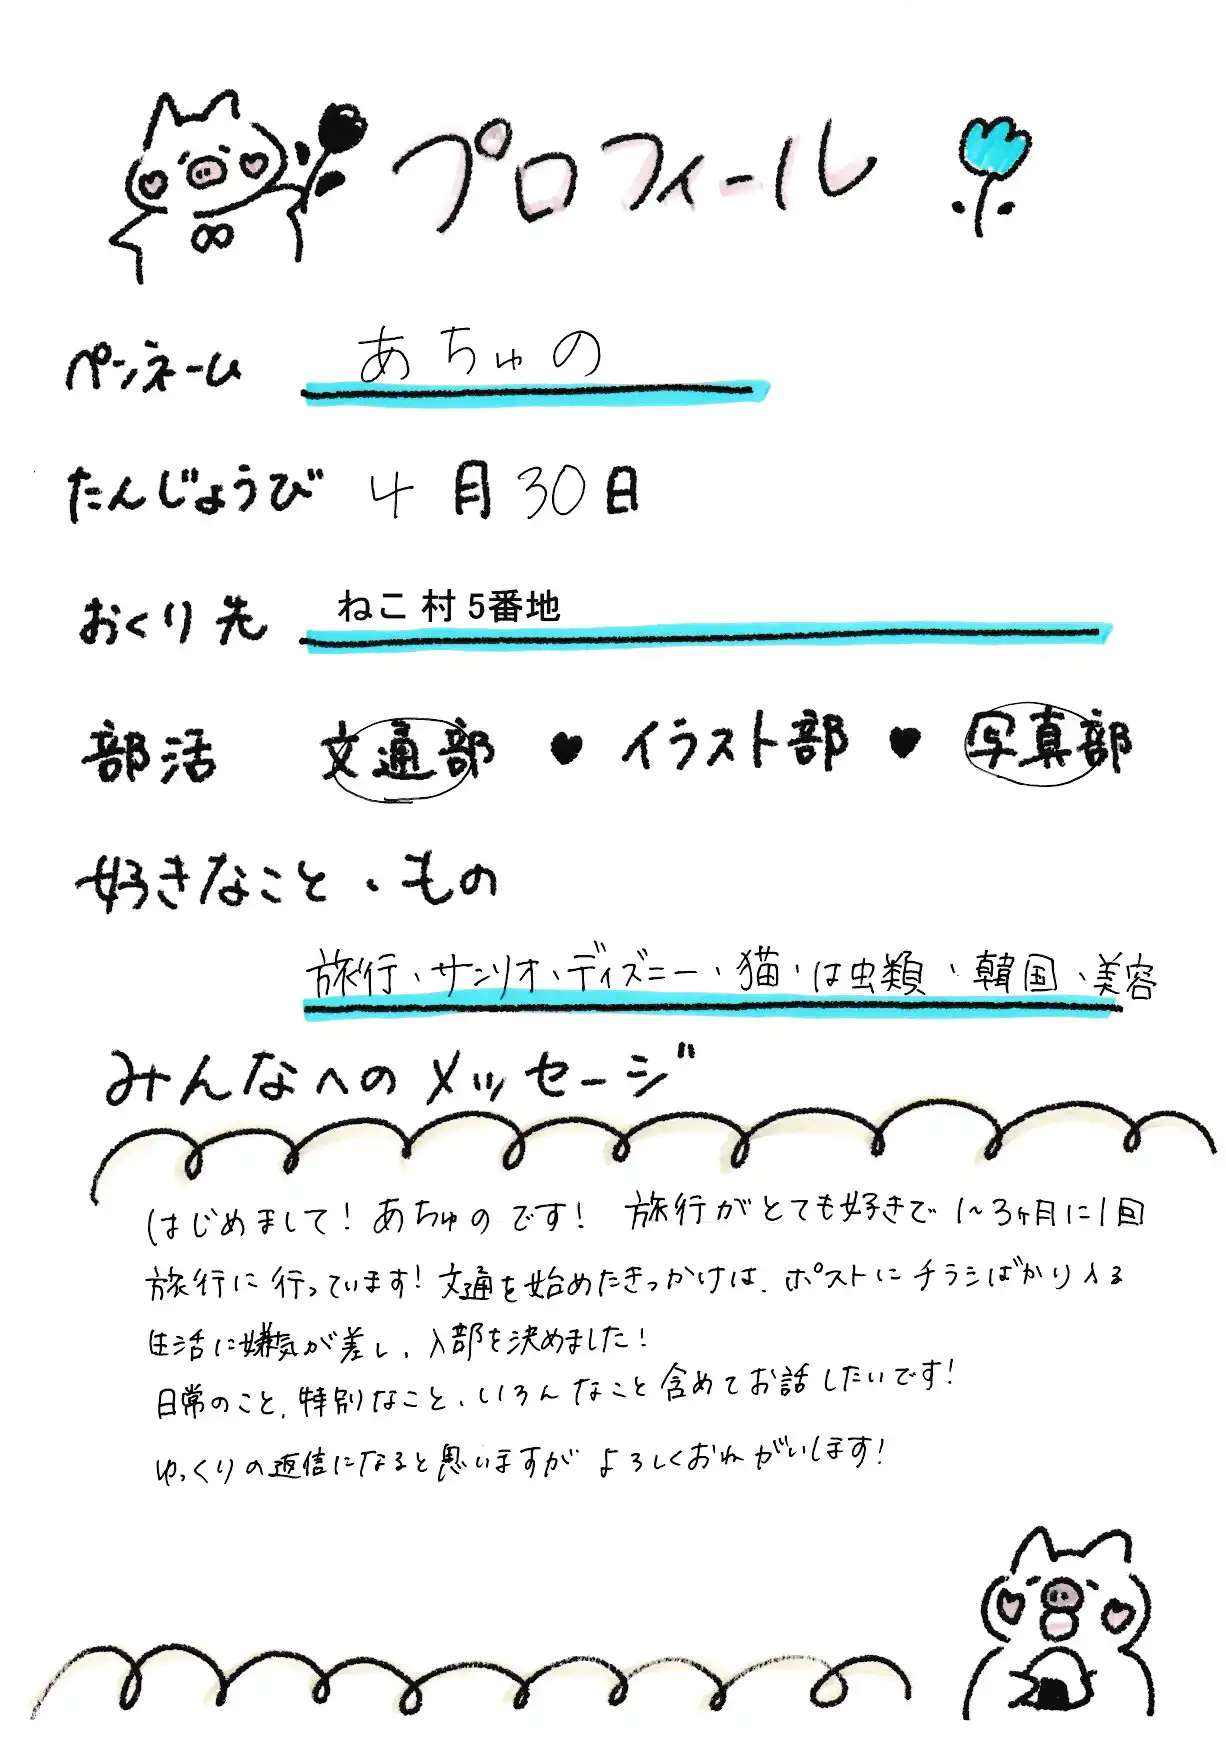 プロフィール
ペンネーム あちゅの
たんじょうび 4月30日
おくり先 ねこ村 5番地
部活 文通部 ♥ イラスト部 ♥ 写真部
好きなこと、もの
旅行・サンリオ・ディズニー・猫・は虫類・韓国・美容
みんなへのメッセージ
はじめまして！あちゅのです！ 旅行がとても好きで1〜3ヶ月に1回
旅行に行っています！文通を始めたきっかけは、ポストにチラシばかり入る
生活に嫌気が差し、入部を決めました！
日常のこと、特別なこと、いろんなこと含めてお話したいです！
ゆっくりの返信になると思いますがよろしくおねがいします！